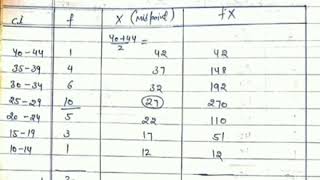 C.I f X (midpoint) fX
40-44 1 40+44/2 = 42 42
35-39 4 37 148
30-34 6 32 192
25-29 10 27 270
20-24 5 22 110
15-19 3 17 51
10-14 1 12 12